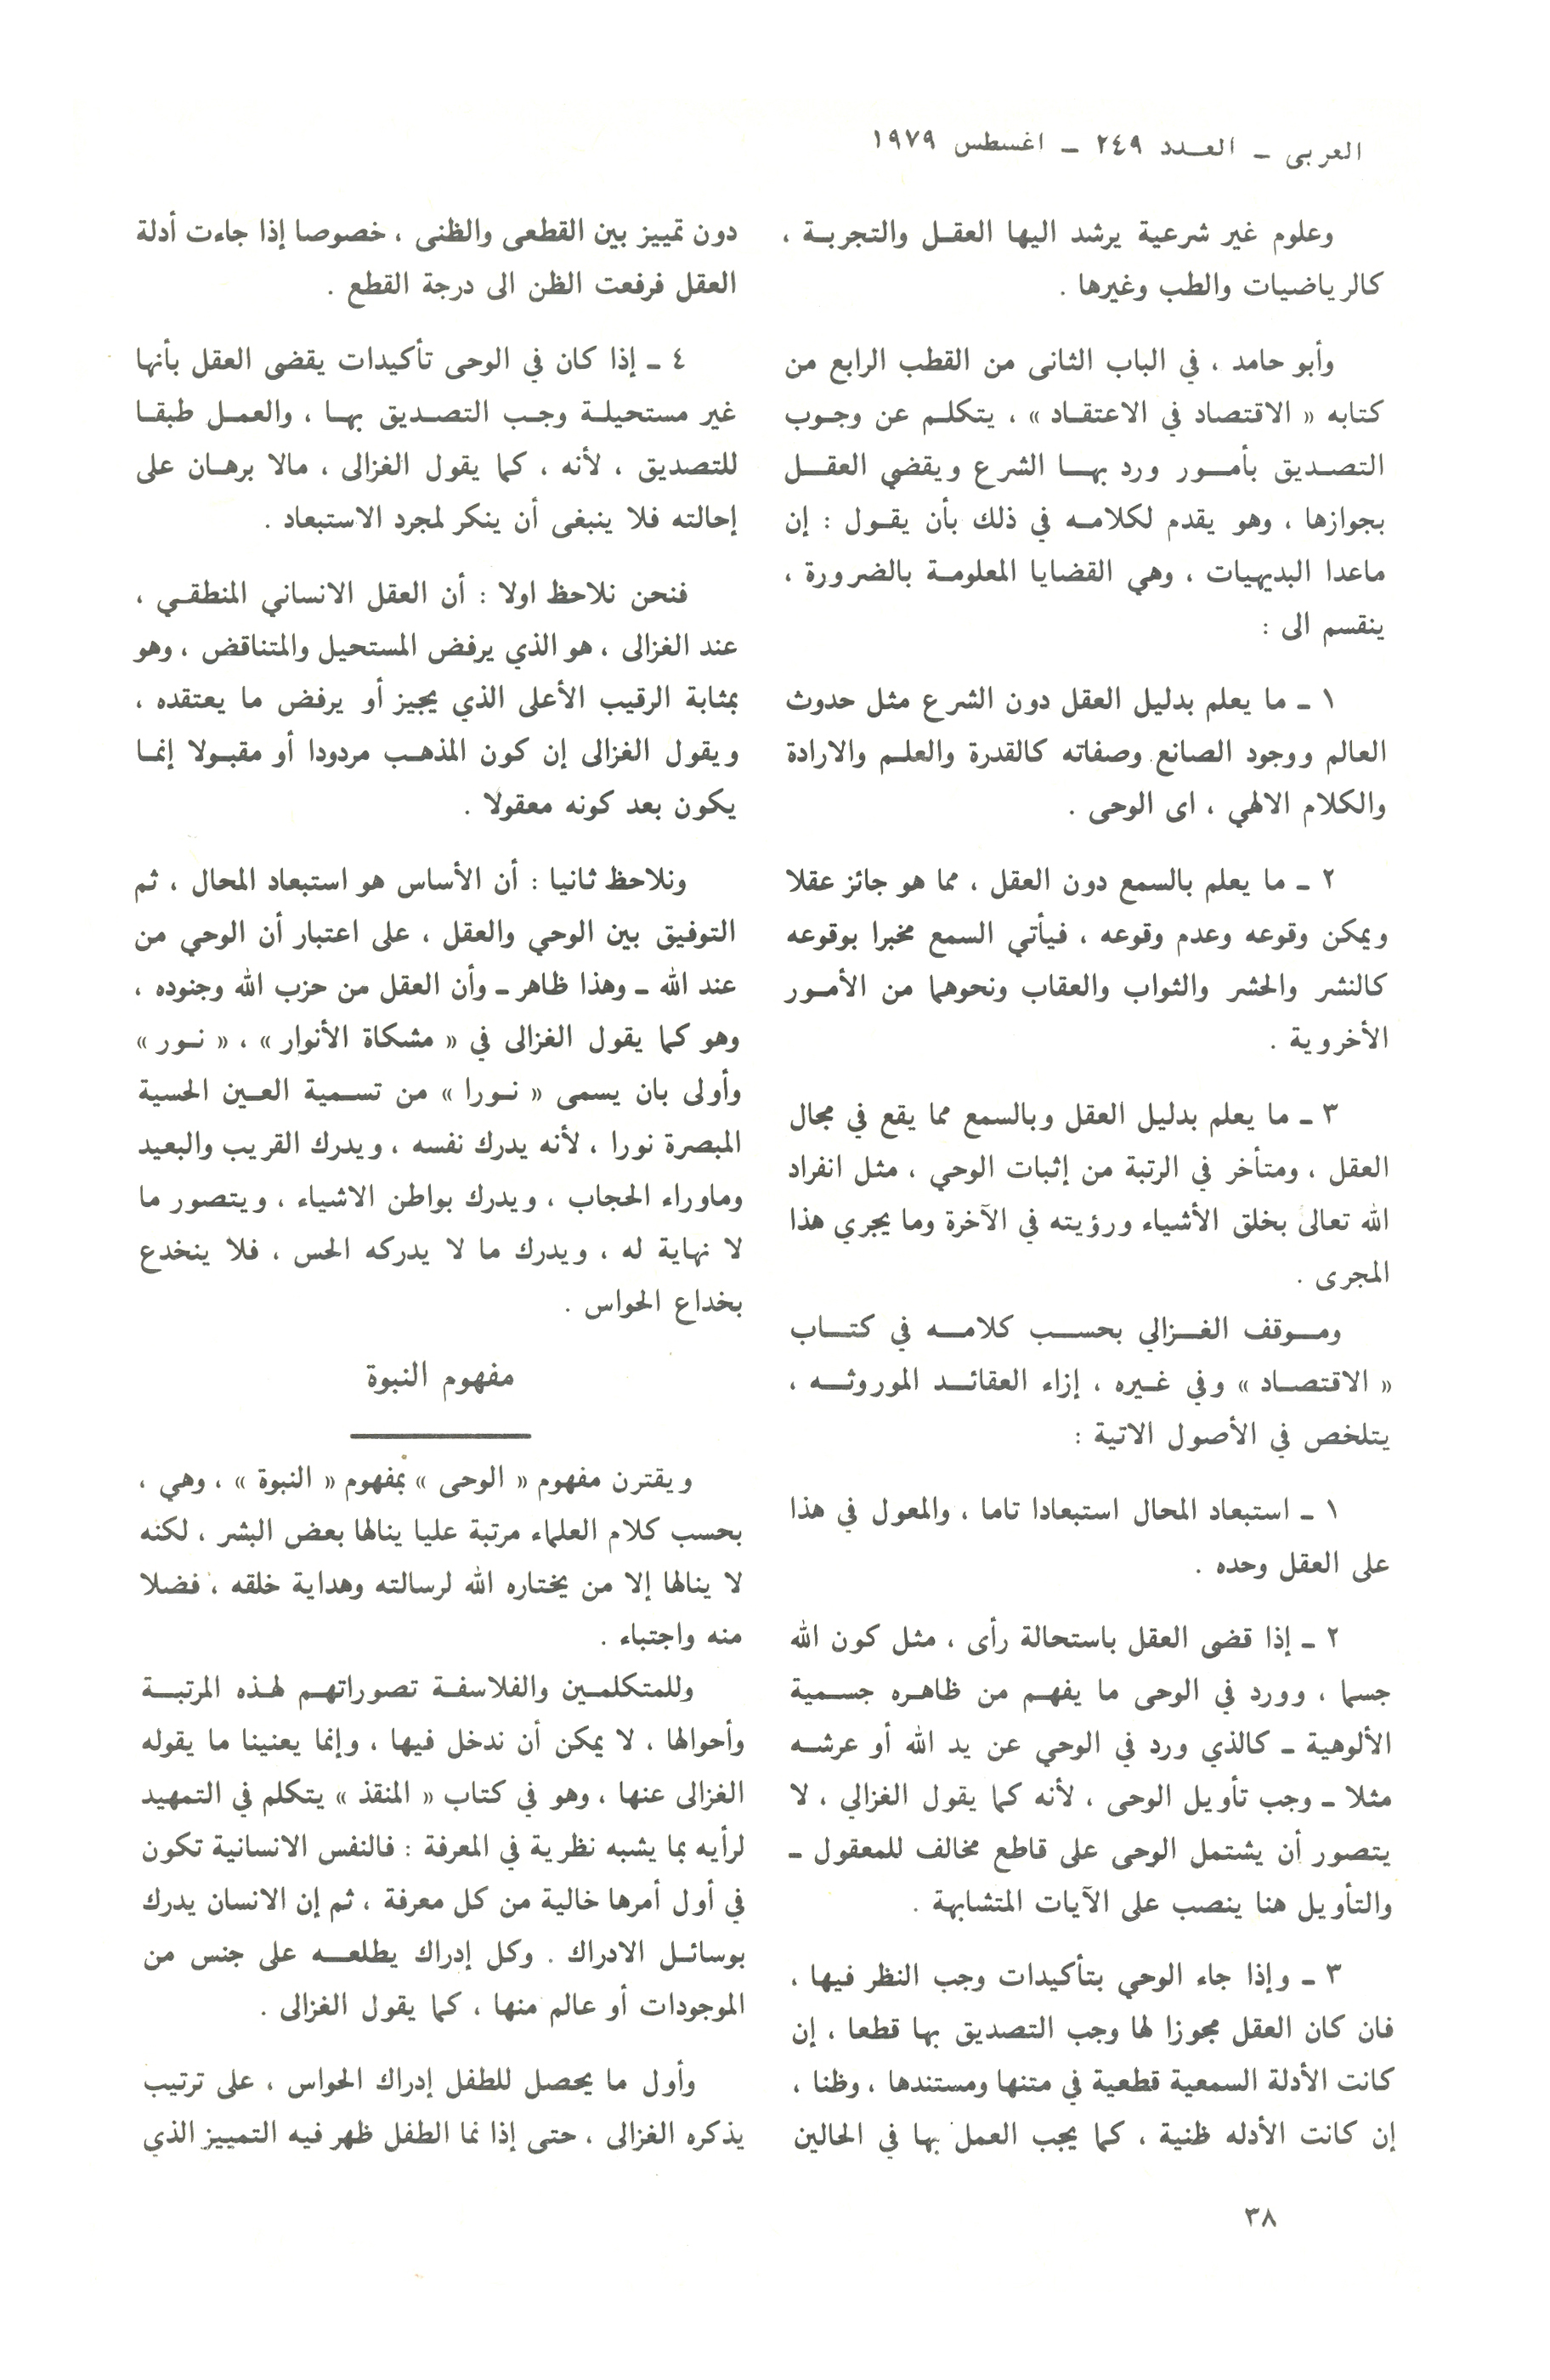 العربى ــ العـدد ٢٤٩ ــ اغسطس ١٩٧٩
وعلوم غير شرعية يرشد اليها العقـل والتجربـة ،
كالرياضيات والطب وغيرها .
وأبو حامد ، في الباب الثانى من القطب الرابع من
كتابه « الاقتصاد في الاعتقـاد » ، يتكلـم عن وجـوب
التصـديق بأمـور ورد بهـا الشرع ويقضي العقـل
بجوازها ، وهو يقدم لكلامـه في ذلك بأن يقـول : إن
ماعدا البديهيات ، وهي القضايا المعلومـة بالضرورة ،
ينقسم الى :
١ ــ ما يعلم بدليل العقل دون الشرع مثل حدوث
العالم ووجود الصانع وصفاته كالقدرة والعلـم والارادة
والكلام الالهي ، اى الوحى .
٢ ــ ما يعلم بالسمع دون العقل ، مما هو جائز عقلا
ويمكن وقوعه وعدم وقوعه ، فيأتي السمع مخبرا بوقوعه
كالنشر والحشر والثواب والعقاب ونحوهما من الأمـور
الأخروية .
٣ ــ ما يعلم بدليل العقل وبالسمع مما يقع في مجال
العقل ، ومتأخر في الرتبة من إثبات الوحي ، مثل انفراد
الله تعالى بخلق الأشياء ورؤيته في الآخرة وما يجري هذا
المجرى .
ومـوقف الغـزالي بحسـب كلامـه في كتـاب
« الاقتصـاد » وفي غـيره ، إزاء العقائـد الموروثـه ،
يتلخص في الأصول الاتية :
١ ــ استبعاد المحال استبعادا تاما ، والمعول في هذا
على العقل وحده .
٢ ــ إذا قضى العقل باستحالة رأى ، مثل كون الله
جسما ، وورد في الوحى ما يفهـم من ظاهـره جسـمية
الألوهية ــ كالذي ورد في الوحي عن يد الله أو عرشـه
مثلا ــ وجب تأويل الوحى ، لأنه كما يقول الغزالي ، لا
يتصور أن يشتمل الوحى على قاطع مخالف للمعقول ــ
والتأويل هنا ينصب على الآيات المتشابهة .
٣ ــ وإذا جاء الوحي بتأكيدات وجب النظر فيها ،
فان كان العقل مجوزا لها وجب التصديق بها قطعا ، إن
كانت الأدلة السمعية قطعية في متنها ومستندها ، وظنا ،
إن كانت الأدله ظنية ، كما يجب العمل بها في الحالين
دون تمييز بين القطعى والظنى ، خصوصا إذا جاءت أدلة
العقل فرفعت الظن الى درجة القطع .
٤ ــ إذا كان في الوحى تأكيدات يقضى العقل بأنها
غير مستحيلـة وجـب التصـديق بهـا ، والعمـل طبقـا
للتصديق ، لأنه ، كما يقول الغزالى ، مالا برهـان على
إحالته فلا ينبغى أن ينكر لمجرد الاستبعاد .
فنحن نلاحظ اولا : أن العقل الانساني المنطقـي ،
عند الغزالى ، هو الذي يرفض المستحيل والمتناقض ، وهو
بمثابة الرقيب الأعلى الذي يجيز أو يرفض ما يعتقده ،
ويقول الغزالى إن كون المذهـب مردودا أو مقبـولا إنمـا
يكون بعد كونه معقولا .
ونلاحظ ثانيا : أن الأساس هو استبعاد المحال ، ثم
التوفيق بين الوحي والعقل ، على اعتبار أن الوحي من
عند الله ــ وهذا ظاهر ــ وأن العقل من حزب الله وجنوده ،
وهو كما يقول الغزالى في « مشكاة الأنوار » ، « نـور »
وأولى بان يسمى « نـورا » من تسـمية العـين الحسية
المبصرة نورا ، لأنه يدرك نفسه ، ويدرك القريب والبعيد
وماوراء الحجاب ، ويدرك بواطن الاشياء ، ويتصور ما
لا نهاية له ، ويدرك ما لا يدركه الحس ، فلا ينخدع
بخداع الحواس .
مفهوم النبوة
ويقترن مفهوم « الوحى » بمفهوم « النبوة » ، وهي ،
بحسب كلام العلماء مرتبة عليا ينالها بعض البشر ، لكنه
لا ينالها إلا من يختاره الله لرسالته وهداية خلقه ، فضلا
منه واجتباء .
وللمتكلمـين والفلاسفـة تصوراتهـم لهـذه المرتبـة
وأحوالها ، لا يمكن أن ندخل فيها ، وإنما يعنينا ما يقوله
الغزالى عنها ، وهو في كتاب « المنقذ » يتكلم في التمهيد
لرأيه بما يشبه نظرية في المعرفة : فالنفس الانسانية تكون
في أول أمرها خالية من كل معرفة ، ثم إن الانسان يدرك
بوسائـل الادراك . وكل إدراك يطلعـه على جنس من
الموجودات أو عالم منها ، كما يقول الغزالى .
وأول ما يحصل للطفل إدراك الحواس ، على ترتيب
يذكره الغزالى ، حتى إذا نما الطفل ظهر فيه التمييز الذي
٣٨